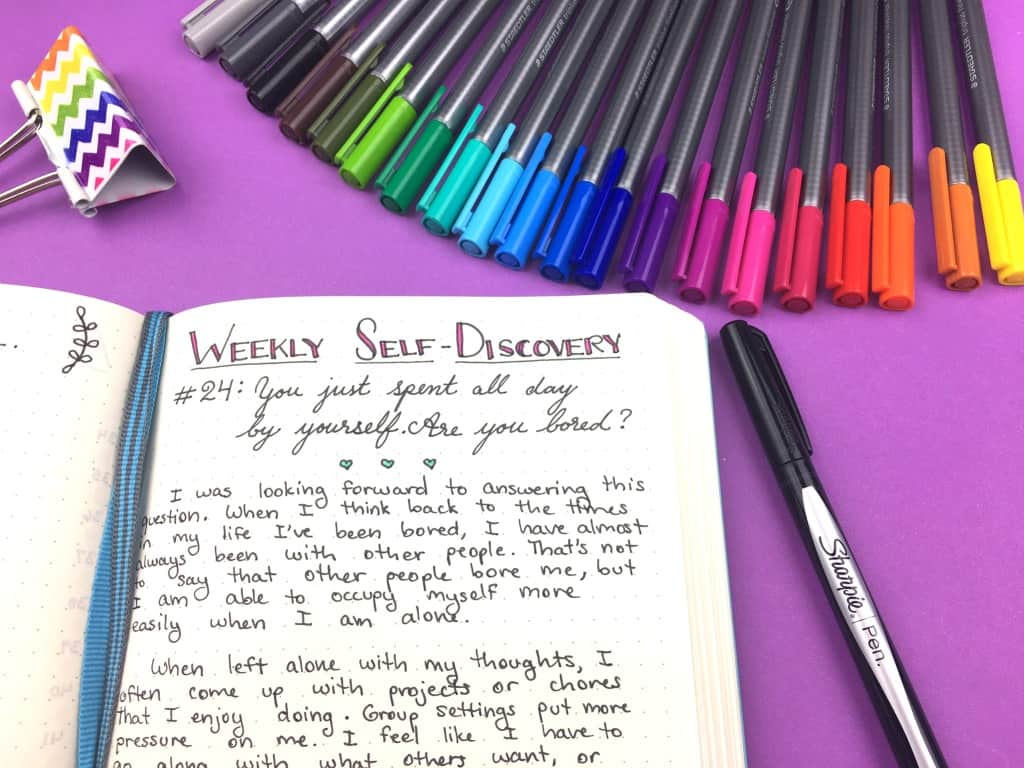 WEEKLY SELF-DISCOVERY
#24: You just spent all day
by yourself. Are you bored?
I was looking forward to answering this
question. When I think back to the times
in my life I've been bored, I have almost
always been with other people. That's not
to say that other people bore me, but
I am able to occupy myself more
easily when I am alone.
When left alone with my thoughts, I
often come up with projects or chores
that I enjoy doing. Group settings put more
pressure on me. I feel like I have to
go along with what others want, or
Sharpie. | Pen.
STAEDTLER
STAEDTLER
STAEDTLER
STAEDTLER